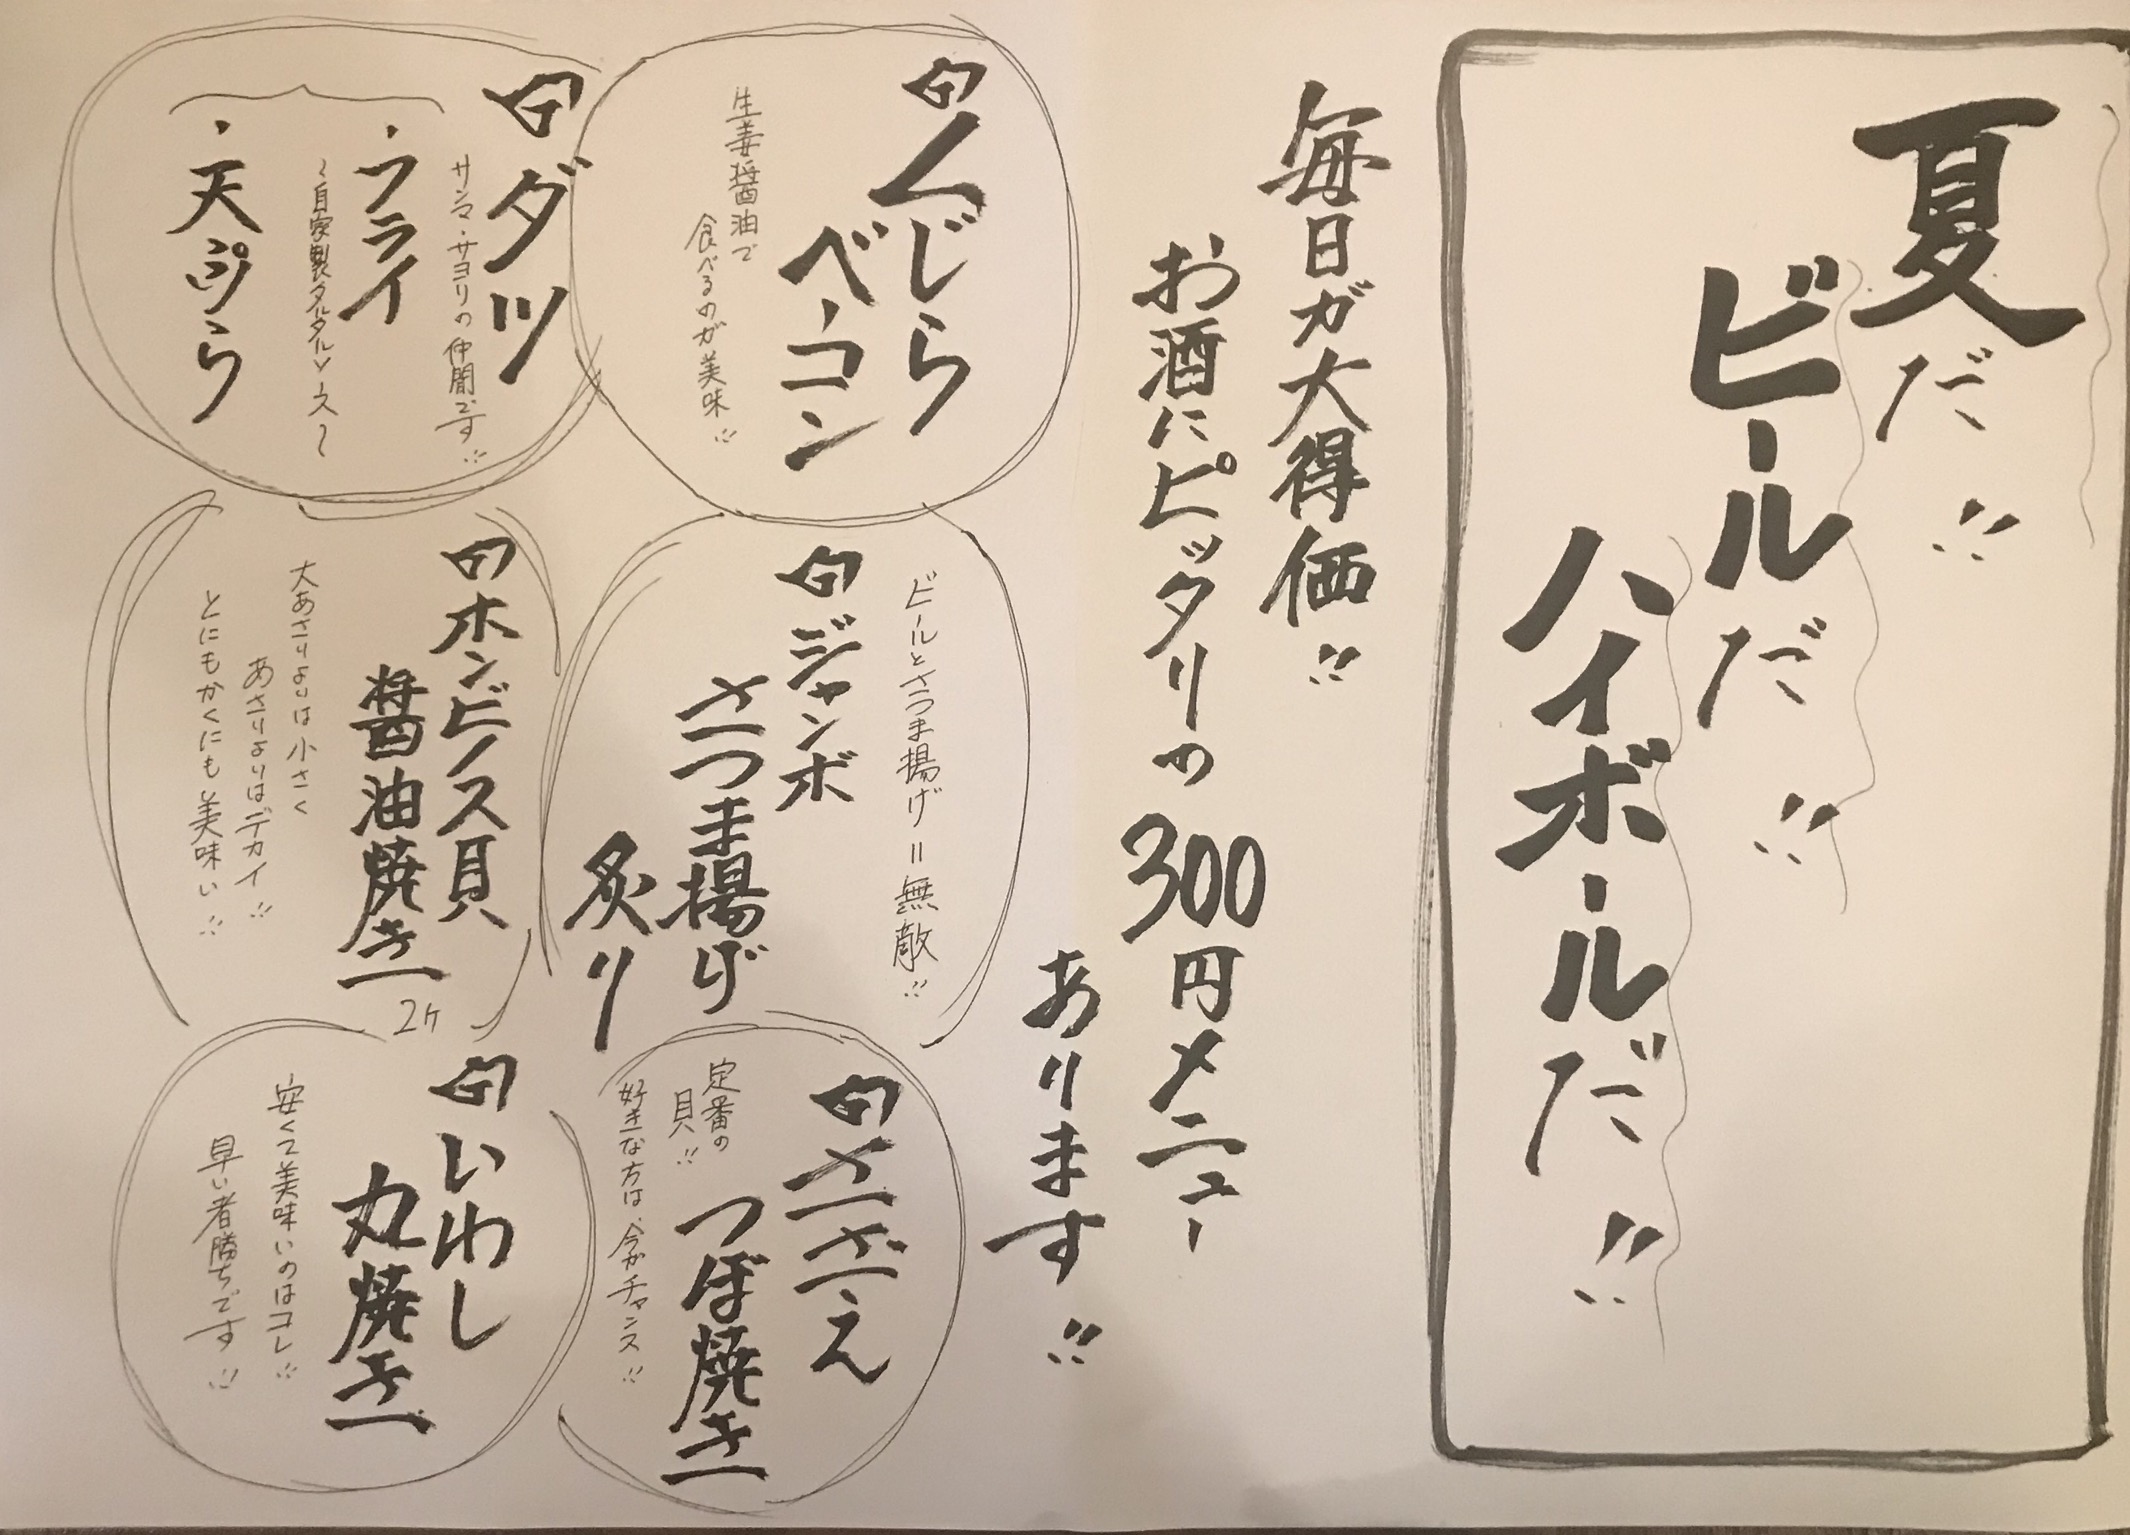 夏だ!!
ビールだ!!
ハイボールだ!!
毎日ガ大得価!!
お酒にピッタリの300円メニュー
あります!!
くじら
ベーコン
生姜醤油で
食べるのが美味!!
ダツ
サンマ・サヨリの仲間です!!
・フライ
〜自家製タルタルソース〜
・天ぷら
ビールとさつま揚げ=無敵!!
ジャンボ
さつま揚げ
炙り
ホンビノス貝
醤油焼き
2ケ
大あさりよりは小さく
あさりよりはデカイ!!
とにもかくにも美味い!!
さざえ
つぼ焼き
定番の
貝!!
好きな方は、今がチャンス!!
いわし
丸焼き
安くて美味いのはコレ!!
早い者勝ちです!!